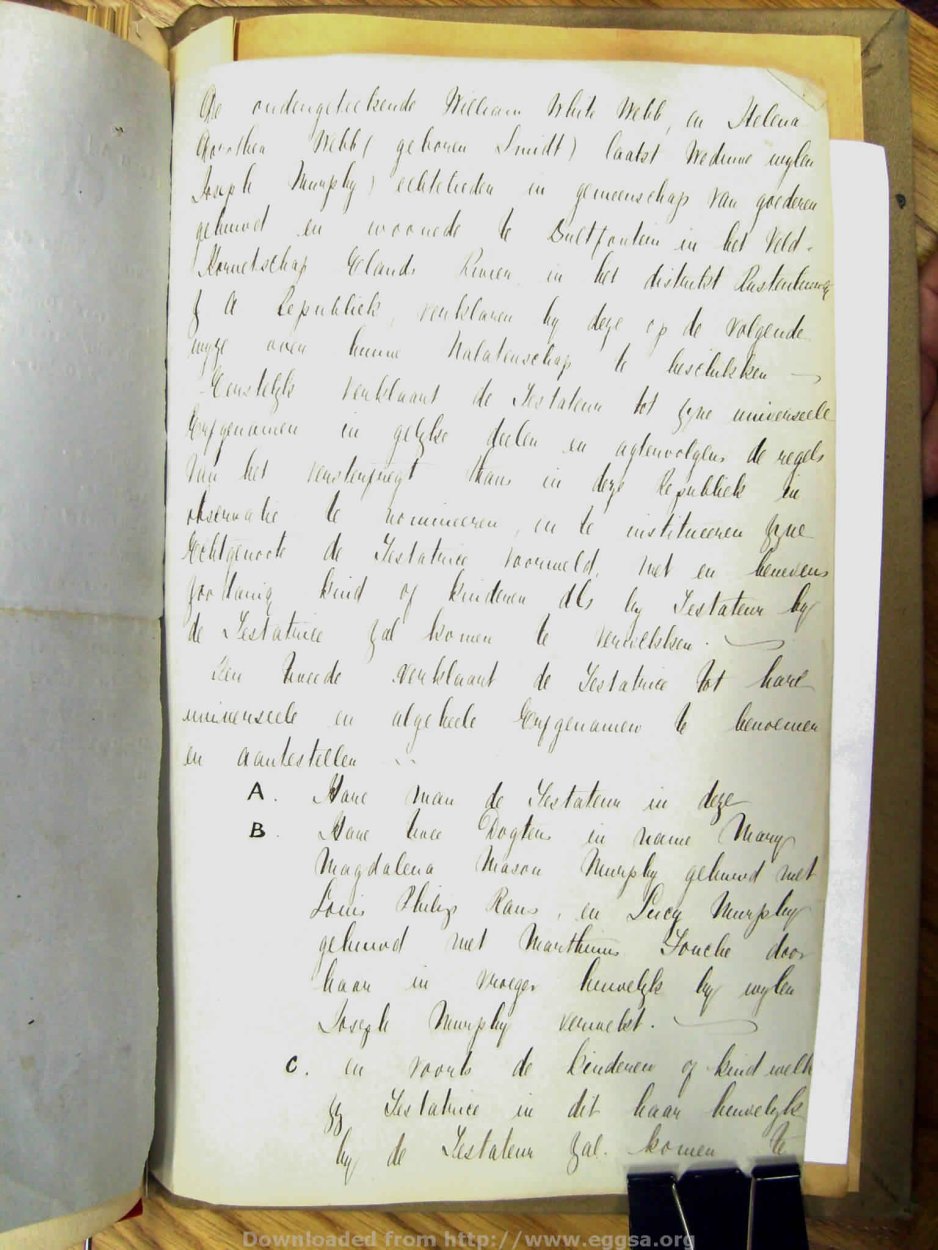 De ondergeteekende William White Webb, en Helena
Dorothea Webb (geboren Smidt) laatst Weduwe wylen
Joseph Murphy) echtelieden in gemeenschap van goederen
gehuwd en woonede te Bultfontein in het Veld-
Kornetschap Elands Rivier in het distrikt Rustenburg
Z A Republiek, verklaren by deze op de volgende
wyze over hunne Nalatenschap te beschikken
Eerstelyk verklaart de Testateur tot zyne universeele
Erfgenamen in gelyke deelen en agtervolgens de regels
van het versterfregt thans in deze Republiek in
observatie te nomineeren, en te institueeren zyne
Echtgenoote de Testatrice voormeld, met en benevens
zoodanig kind of kinderen als by Testateur by
de Testatrice zal komen te verwekken.
Ten tweede verklaart de Testatrice tot hare
universeele en algeheele Erfgenamen te benoemen
en aantestellen
A. Hare man de Testateur in deze
B. Hare twee Dogters in name Mary
Magdalena Mason Murphy gehuwd met
Louis Philip Raus, en Lucy Murphy
gehuwd met Marthinus Fouche door
haar in vroeger huwelyk by wylen
Joseph Murphy verwekt.
C. en voorts de kinderen of kind welk
zy Testatrice in dit haar huwelyk
by de Testateur zal komen te
Downloaded from http://www.eggsa.org